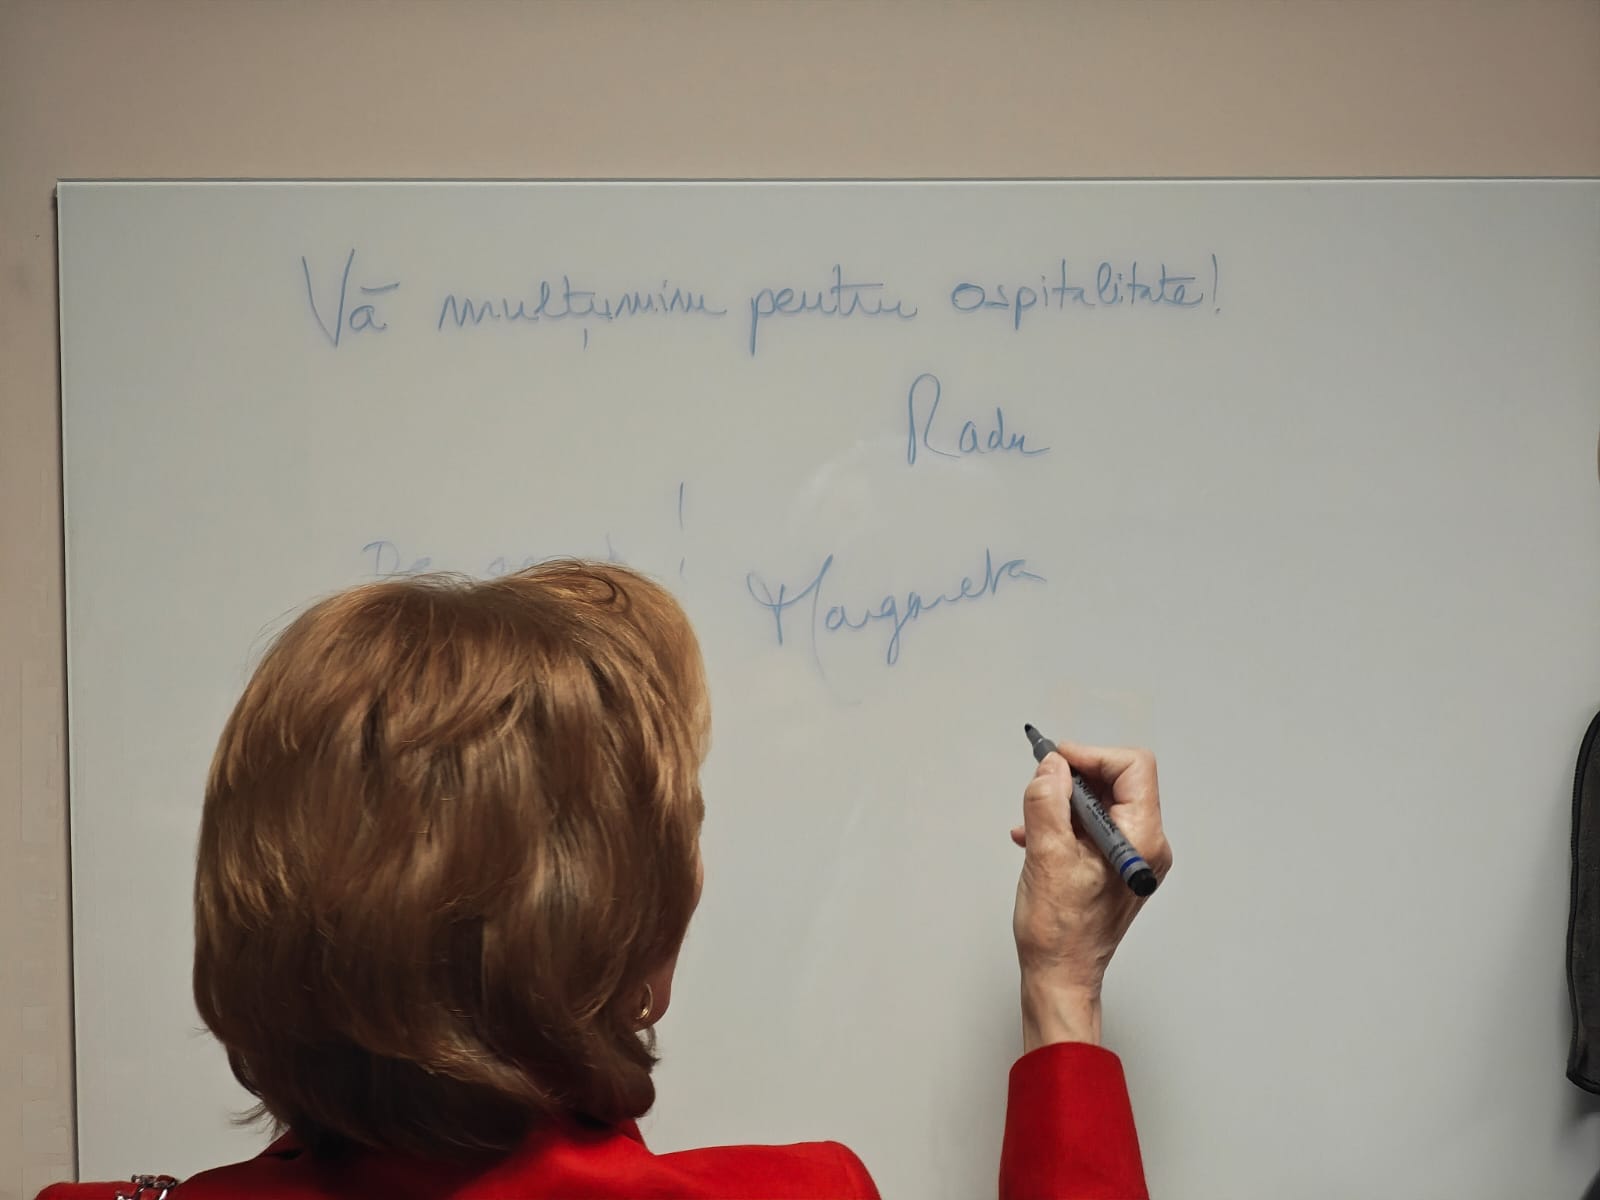 Vă mulțumim pentru ospitalitate!
Radu
!
Margareta